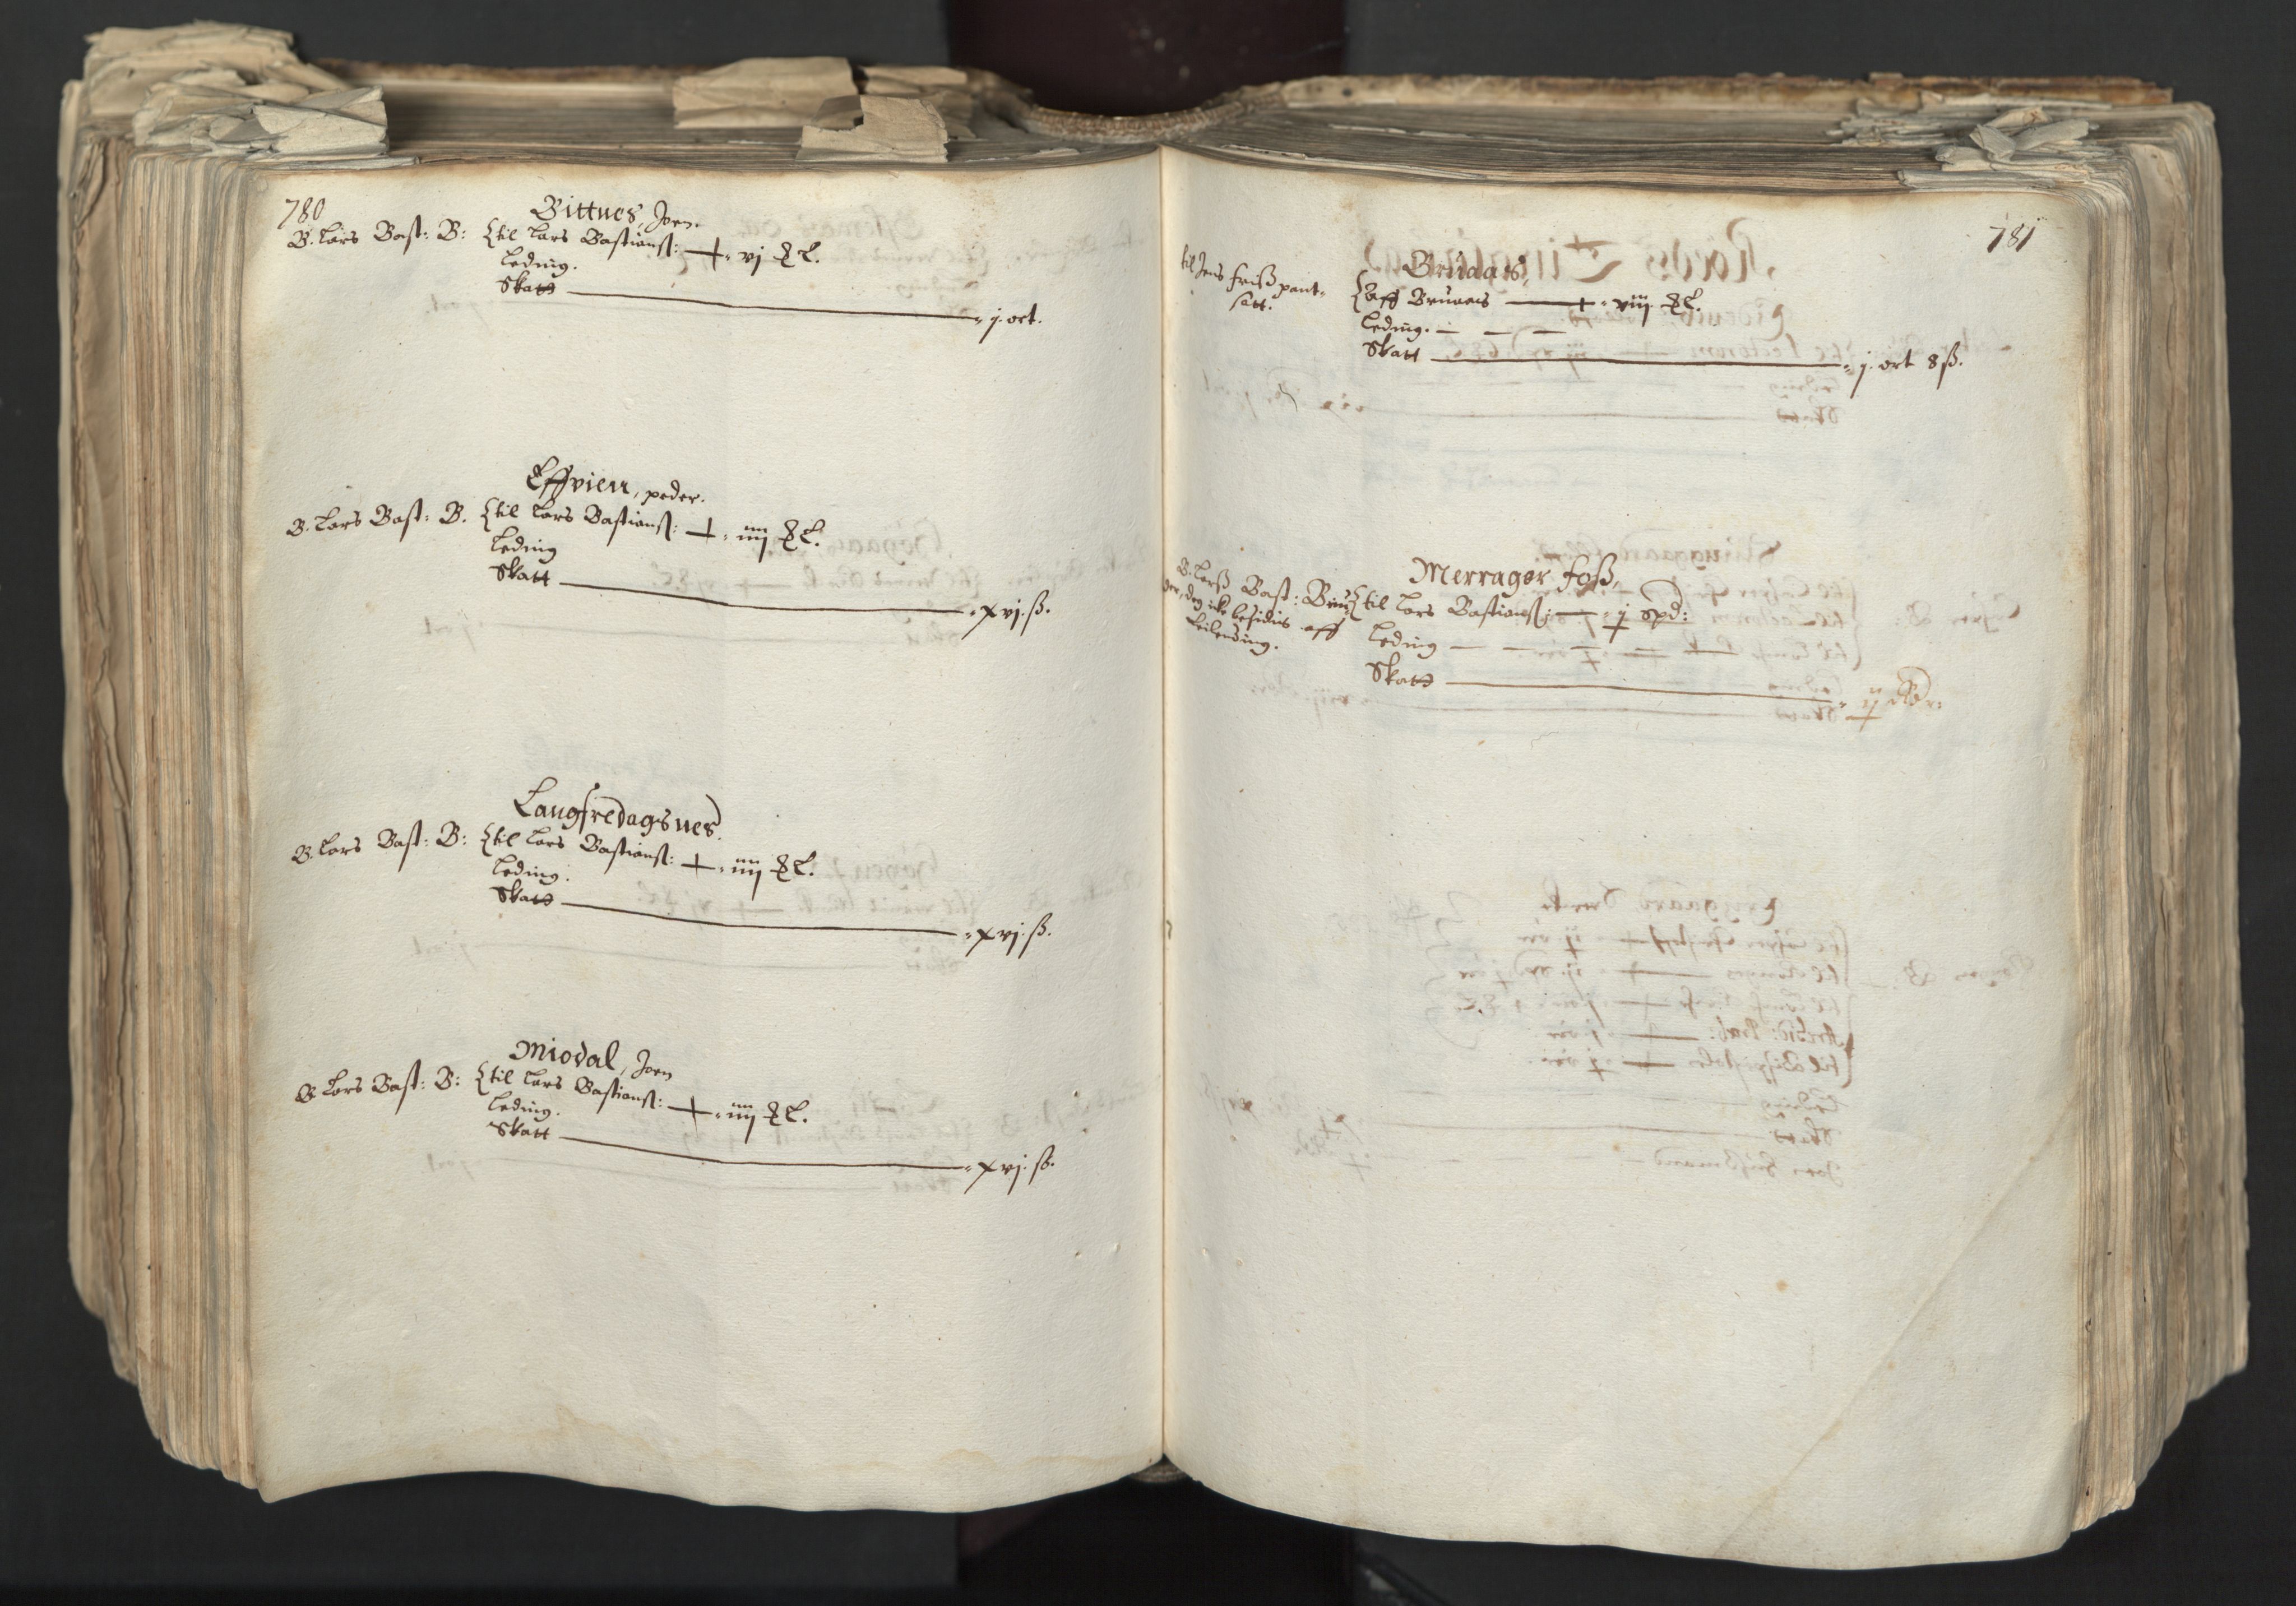 780
Bittnes, Joen.
B. Lars Bast: B: til Lars Bastianß: + vj ℔.
Leding.
Skatt — j. ort.
Effvien, peder.
B. Lars Bast: B. til Lars Bastianß: + iiij ℔.
Leding
Skatt — xvj. ß.
Langfredagsnes.
B. Lars Bast: B: til Lars Bastianß: + iiij ℔.
Leding.
Skatt — xvj. ß.
Miodal, Joen
B. Lars Bast: B: til Lars Bastianß: + iiij ℔.
Leding.
Skatt — xvj. ß.
781
Bruaas,
til Jens Friß pant-
satt.
aff Bruaas — + viij ℔.
Leding. — — —
Skatt — j. ort 8 ß.
Merrager Foß,
B. Larß Bast: til Lars Bastianß: — j Spd:
dog icke besidis aff
Leilending.
Leding — — —
Skatt — ij